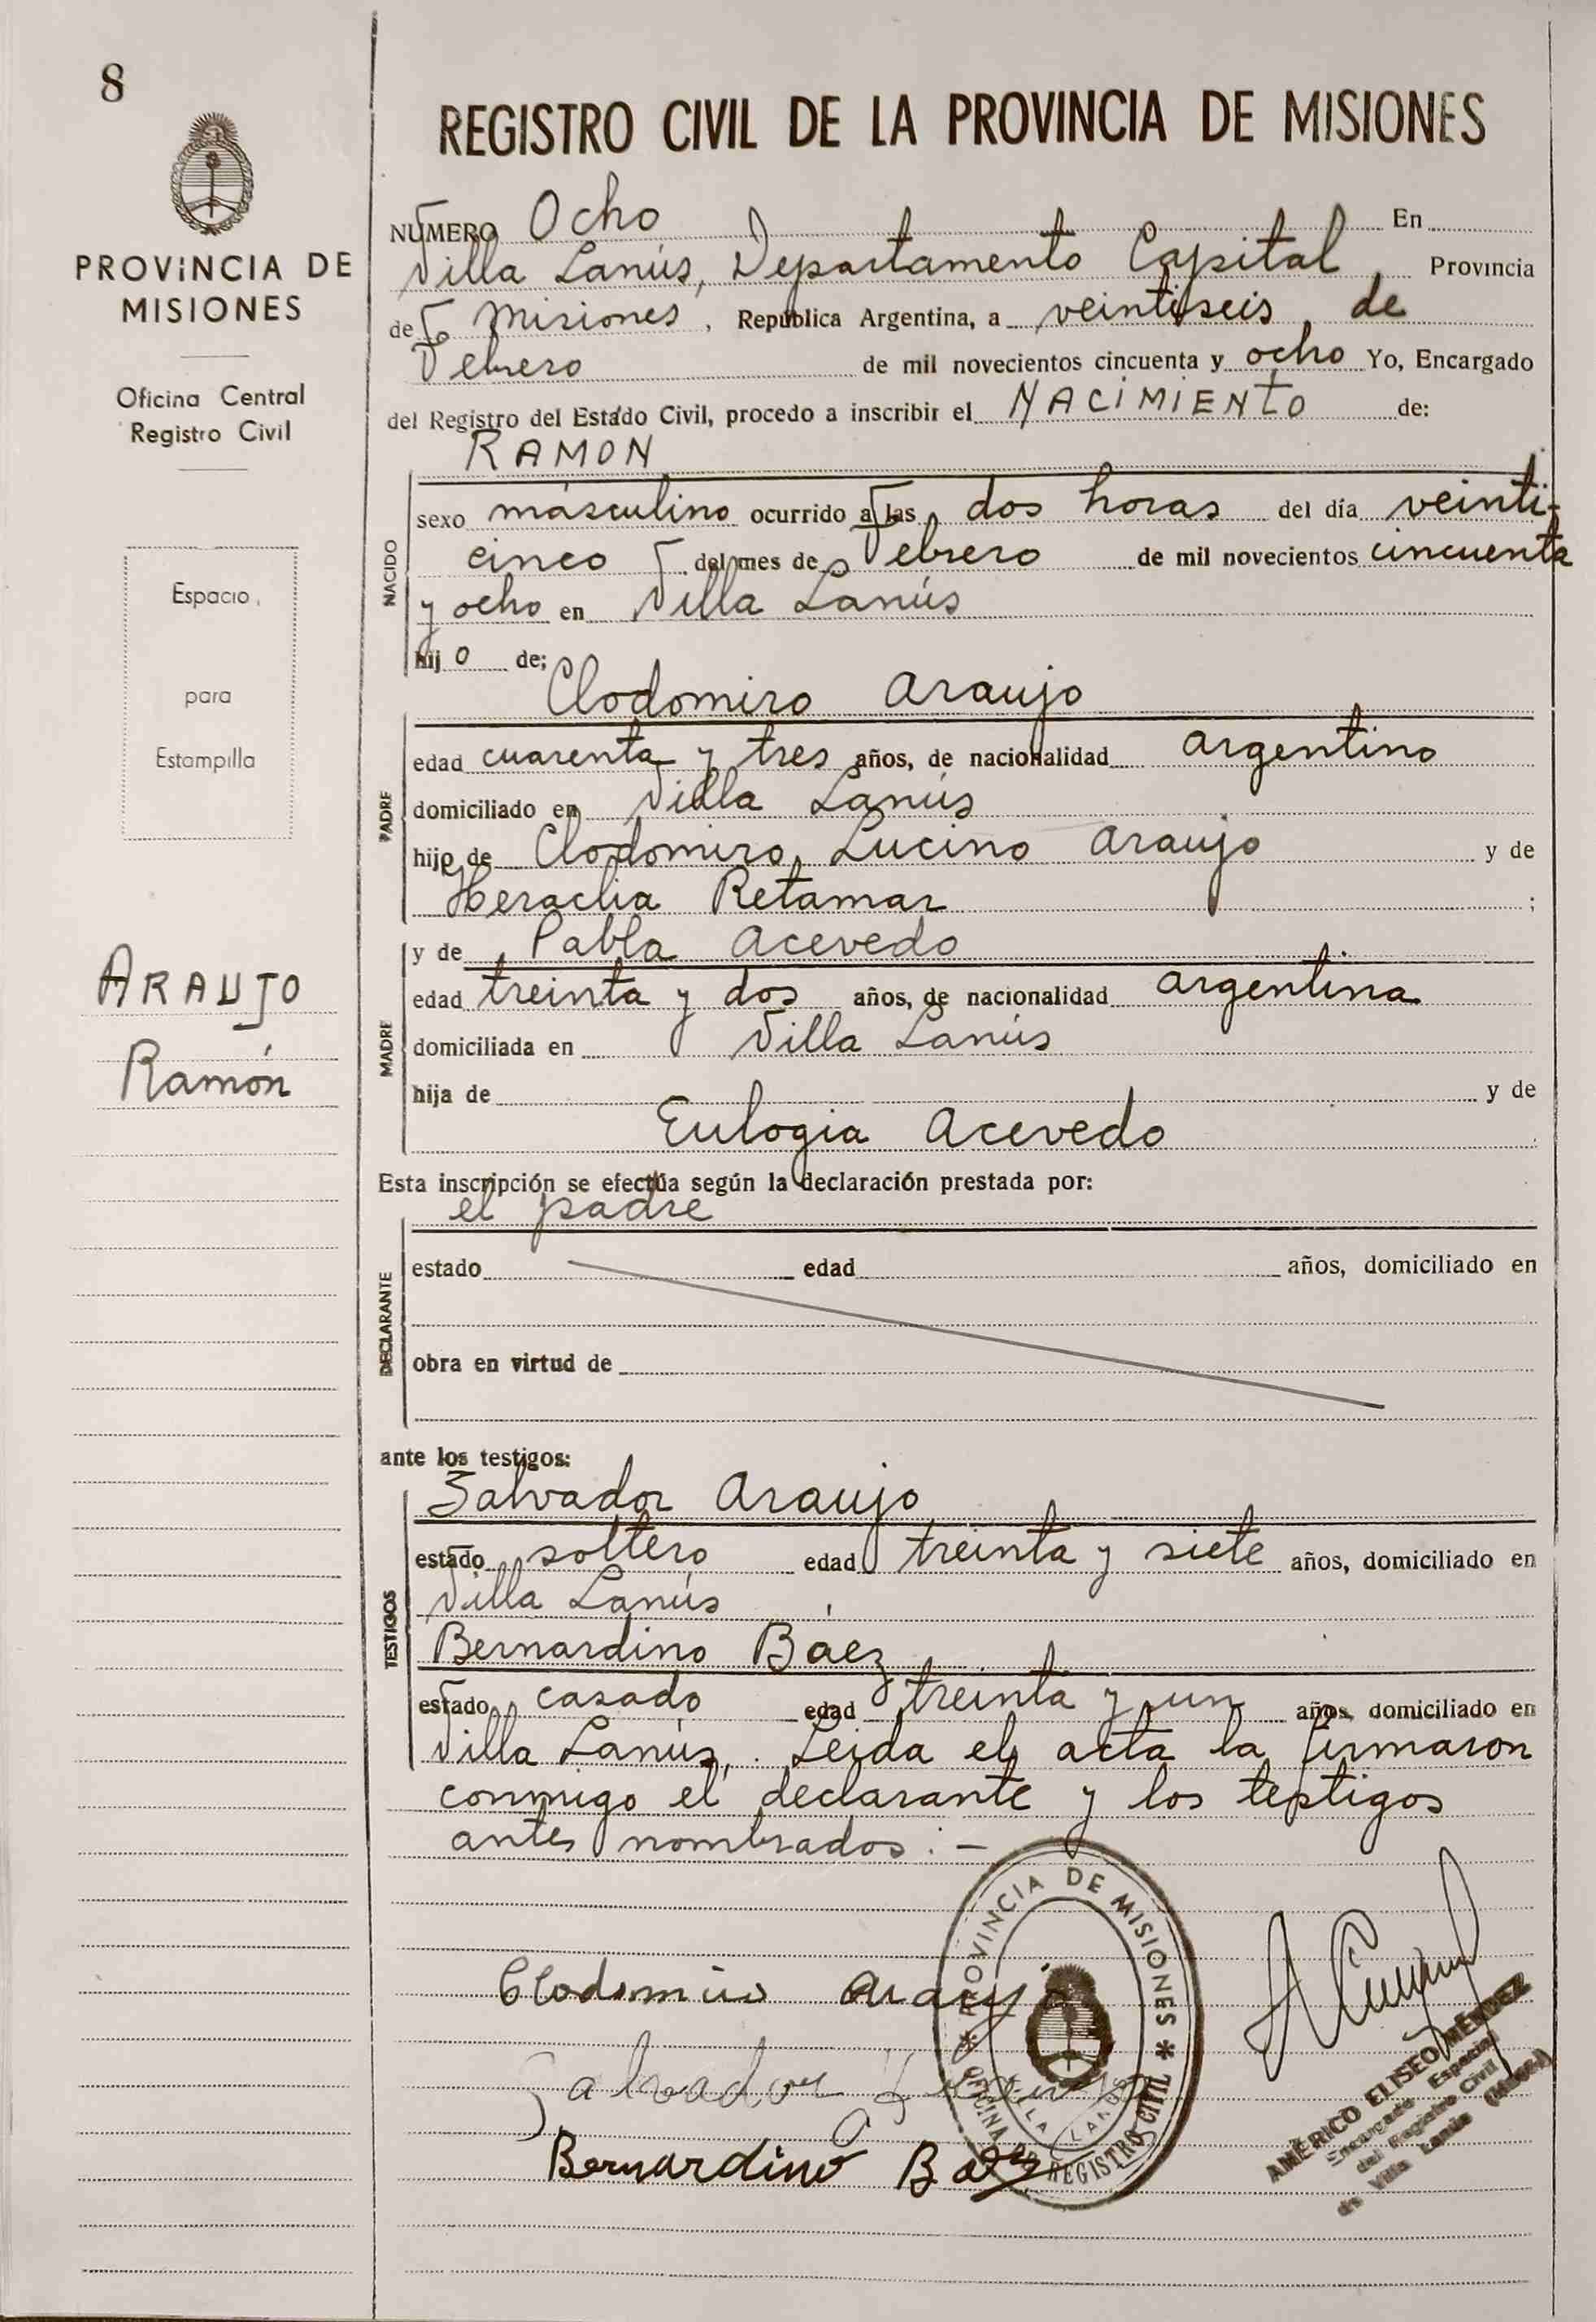 8
PROVINCIA DE
MISIONES
Oficina Central
Registro Civil
Espacio
para
Estampilla
ARAUJO
Ramón
REGISTRO CIVIL DE LA PROVINCIA DE MISIONES
NUMERO Ocho En
Villa Lanús, Departamento Capital, Provincia
de Misiones, República Argentina, a veintiseis de
Febrero de mil novecientos cincuenta y ocho Yo, Encargado
del Registro del Estado Civil, procedo a inscribir el NACIMIENTO de:
RAMON
NACIDO
sexo masculino ocurrido a las dos horas del día veinti-
cinco del mes de Febrero de mil novecientos cincuenta
y ocho en Villa Lanús
hijo de;
Clodomiro Araujo
PADRE
edad cuarenta y tres años, de nacionalidad argentino
domiciliado en Villa Lanús
hijo de Clodomiro Lucino Araujo y de
Heraclia Retamar ;
y de Pabla Acevedo
MADRE
edad treinta y dos años, de nacionalidad argentina
domiciliada en Villa Lanús
hija de y de
Eulogia Acevedo
Esta inscripción se efectúa según la declaración prestada por:
el padre
DECLARANTE
estado edad años, domiciliado en
obra en virtud de
ante los testigos:
Salvador Araujo
TESTIGOS
estado soltero edad treinta y siete años, domiciliado en
Villa Lanús
Bernardino Báez
estado casado edad treinta y un años, domiciliado en
Villa Lanús. Leida el acta la firmaron
conmigo el declarante y los testigos
antes nombrados:-
PROVINCIA DE MISIONES
OFICINA DE REGISTRO CIVIL
VILLA LANUS
Clodomiro Araujo
Salvador
Bernardino Báez
AMÉRICO ELISEO MÉNDEZ
Encargado Especial
del Registro Civil
de Villa Lanús (Mnes.)